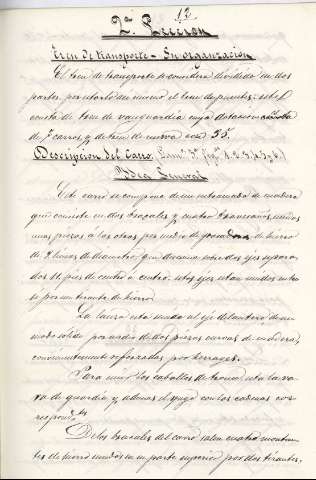 12
2ª. Seccion
Tren de transporte - Su organizacion
El tren de transporte se considera dividido en dos
partes, por estarlo asi mismo el tren de puentes: este
consta de tren de vanguardia cuya dotacion es
de 7 carros, y de tren de reserva con 55.
Descripcion del Carro. Lam. 3ª (fig.
Idea General
Este carro se compone de un entramado de madera
que consiste en dos braçales y cuatro travesaños, unidos
unas piezas a las otras por medio de pasadores de hierro
de 2 lineas de diametro, que descansa sobre dos ejes separa-
dos 11 pies de centro a centro: estos ejes estan unidos entre
si por un tirante de hierro.
La lanza esta unida al eje delantero de un
modo solido por medio de dos piezas curvas de madera,
convenientemente reforzadas por herrages.
Para unir los caballos de tronco esta la va-
ra de guardia y ademas el yugo con las cadenas cor-
respond.tes
De los braçales del carro salen cuatro montan-
tes de hierro unidos en su parte superior por dos tirantes,